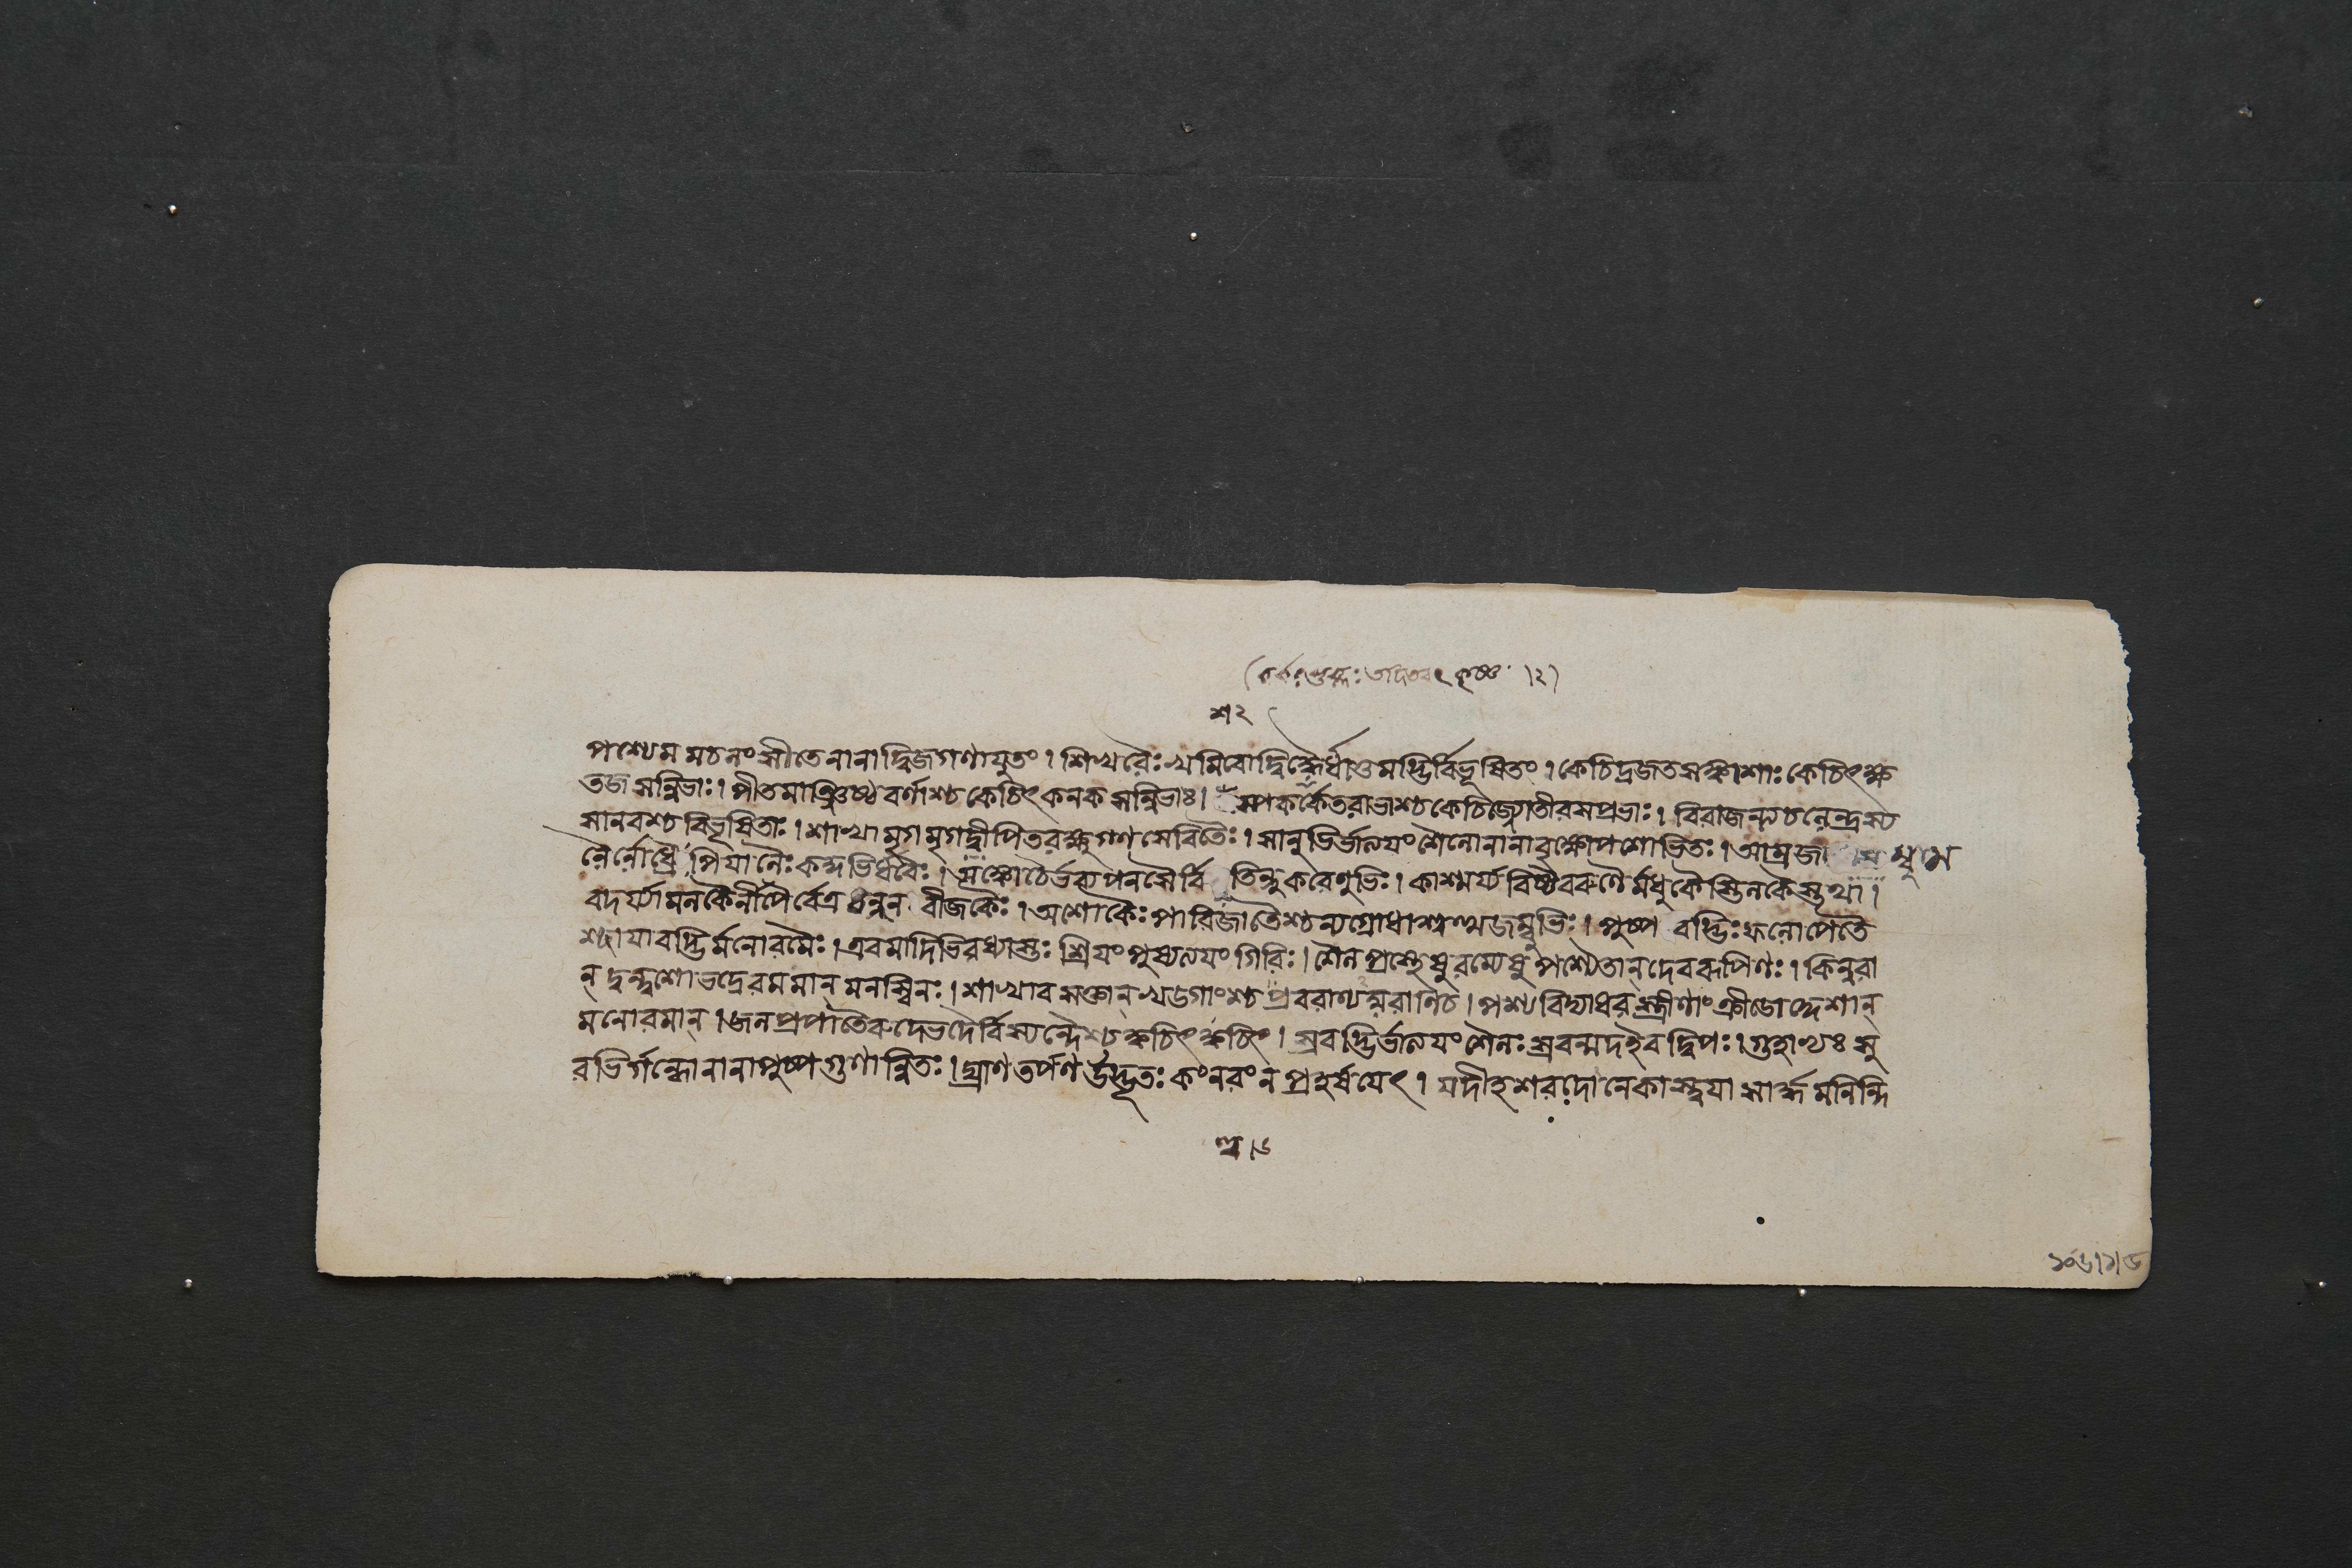 শ২
পশ্যেমমচনংসীতেনানাদ্বিজগণাযুতং। শিখরৈঃখমিবোদ্বিদ্ধৈর্ধাতুমদ্ভির্বিভূষিতং। কেচিদ্রজতসঙ্কাশাঃকেচিৎক্ষ
তজসন্নিভাঃ। পীতমাঞ্জিষ্ঠবর্ণাশ্চকেচিৎকনকসন্নিভাঃ। কেতরাভাশ্চকেচিজ্যোতীরসপ্রভাঃ। বিরাজন্ত্যচলেন্দ্রস্য
সানবশ্চবিভূষিতাঃ। শাখামৃগমৃগদ্বীপিতরক্ষুগণসেবিতৈঃ। সানুভির্ভাত্যযংশৈলোনানাবৃক্ষোপশোভিতঃ। আম্রজ
লৈর্লোধ্রৈঃপিযালৈঃকদ্মভির্ধবৈঃ। তিন্দুকরেণুভিঃ। কাশ্মর্য্যবিষ্টৈবরুণৈর্মধুকৈস্তিলকৈস্তথা।
বদর্য্যামলকৈর্নীপৈর্বেত্রধন্বন বীজকৈঃ। অশোকৈঃপারিজাতৈশ্চন্যগ্রোধাশ্বত্থজম্বুভিঃ। পুষ্প বদ্ভিঃফলোপেতৈ
শ্ছাযাবদ্ভির্মনোরমৈঃ। এবমাদিভিরধ্যস্তঃ শ্রিযংপুষ্যত্যযংগিরিঃ। শৈলপ্রস্থেষুরম্যেষুপশ্যৈতান্দেবরূপিণঃ। কিন্নরা
ন্ দ্বন্দ্বশোভদ্রেরমমান্মনস্বিনঃ। শাখাবসক্তান্খড্গাংশ্চপ্রবরাণ্যম্বরাণিচ। পশ্যবিদ্যাধরস্ত্রীণাংক্রীডোদ্দেশান্
মনোরমান্। জলপ্রপাতৈরুদ্ভেদৈর্বিস্যন্দৈশ্চক্বচিৎক্বচিৎ। স্রবদ্ভির্ভাত্যযংশৈলঃস্রবন্মদইবদ্বিপঃ। গুহাত্থঃসু
রভির্গন্ধোনানাপুষ্পগুণান্বিতঃ। ঘ্রাণতর্পণউদ্ভূতঃকংনরংনপ্রহর্ষযেৎ। যদীহশরদোনেকাস্ত্বযাসার্দ্ধমনিন্দি
১০৬।১।৬